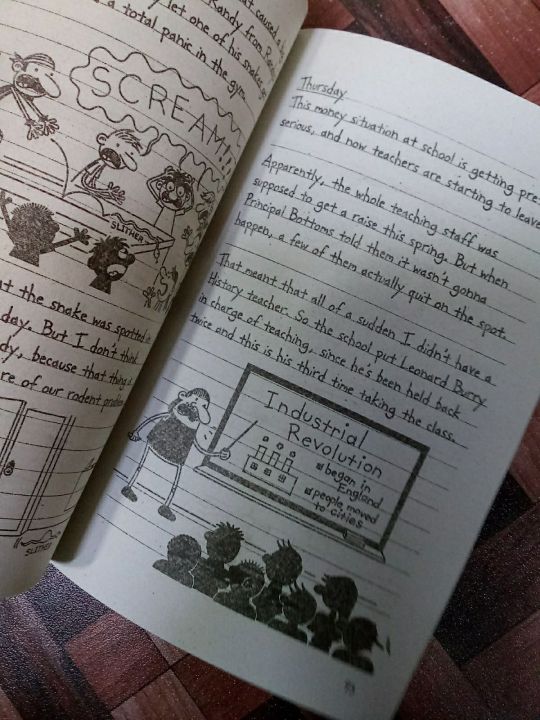 at caused
Randy from
y let one of his snakes
a total panic in the gym
SCREAM!!
SLITHER
at the snake was spotted in
day. But I don't think
dy, because that thing is
re of our rodent problem
SLITHER
Thursday
This money situation at school is getting pre
serious, and now teachers are starting to leave
Apparently, the whole teaching staff was
supposed to get a raise this spring. But when
Principal Bottoms told them it wasn't gonna
happen, a few of them actually quit on the spot.
That meant that all of a sudden I didn't have a
History teacher. So the school put Leonard Burry
in charge of teaching, since he's been held back
twice and this is his third time taking the class.
Industrial
Revolution
began in
England
people moved
to cities